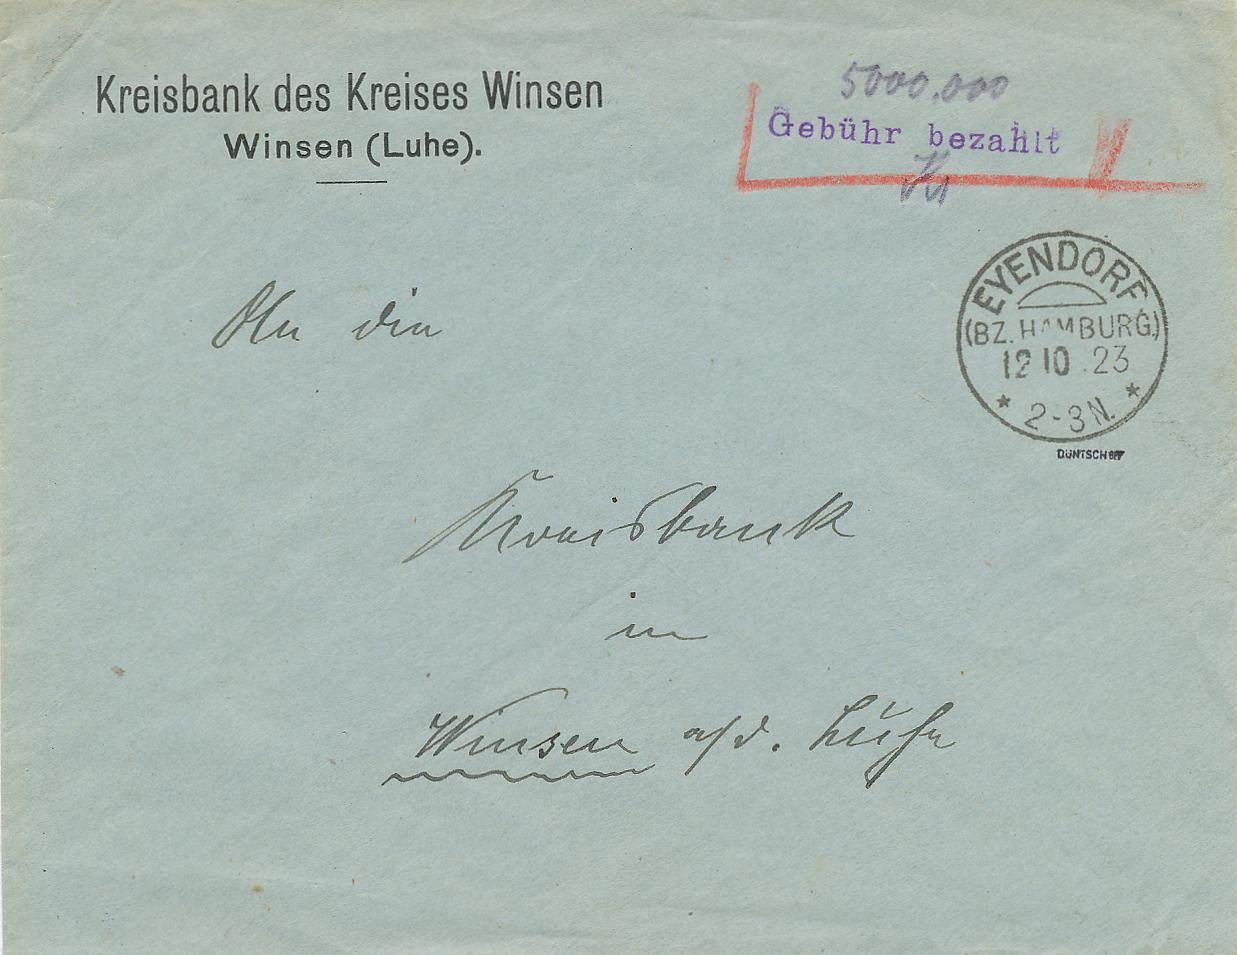 Kreisbank des Kreises Winsen
Winsen (Luhe).
5000.000
Gebühr bezahlt
EYENDORF
(BZ. HAMBURG.)
12 10 .23
* 2-3 N. *
An die
Kreisbank
in
Winsen a/d. Luhe